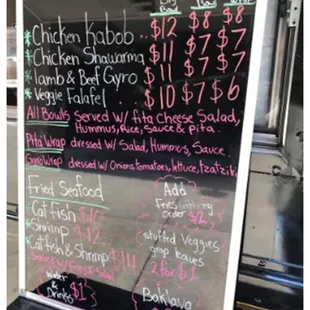 Bowl Bowl Wrap
*Chicken Kabob..$12 $8 $8
*Chicken Shawarma $11 $7 $7
*lamb & Beef Gyro $11 $7 $7
*Veggie Falafel..$10 $7 $6
All Bowls Served w/ fita Cheese Salad,
Hummus, Rice, Sauce & pita.
Pita Wrap dressed w/ Salad, Hummus, Sauce.
Gyro Wrap dressed w/ Onions, tomatoes, lettuce, tzatziki
Fried Seafood
Catfish $10
*Shrimp $12
*Catfish & Shrimp $14
Served w/ Fries & Salad
Water
&
Drinks $1
Add
Fries with any
order $2
stuffed Veggies
grap leaves
2 for $1
Baklava